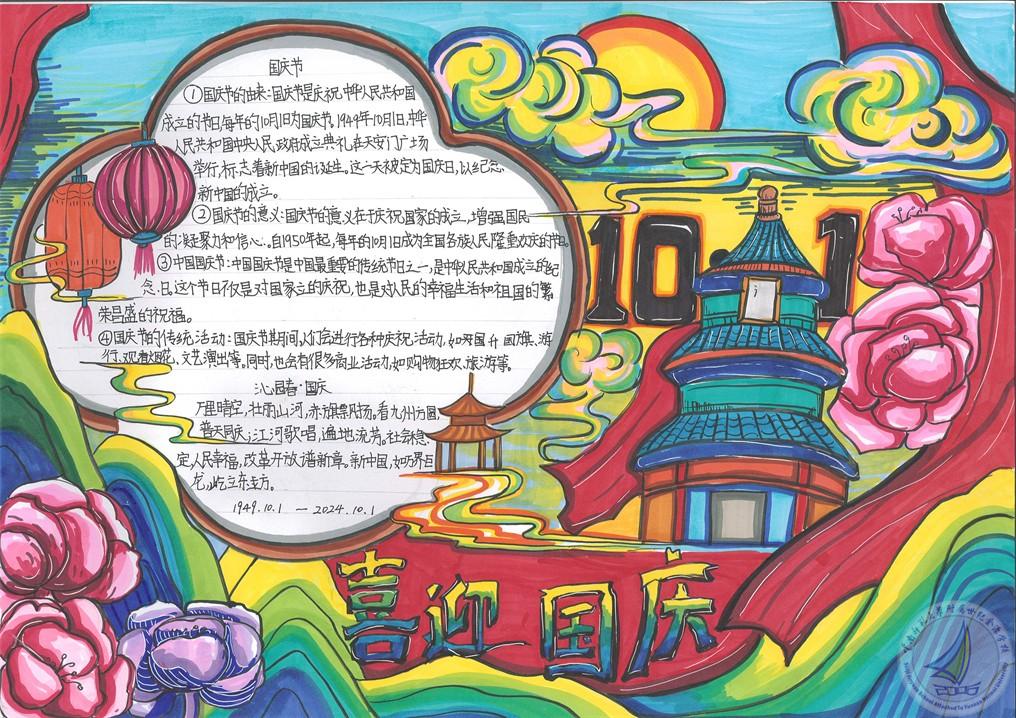 国庆节
①国庆节的由来：国庆节是庆祝中华人民共和国
成立的节日，每年的10月1日为国庆节。1949年10月1日，中华
人民共和国中央人民政府成立典礼在天安门广场
举行，标志着新中国的诞生。这一天被定为国庆日，以纪念
新中国的成立。
②国庆节的意义：国庆节的意义在于庆祝国家的成立，增强国民
的凝聚力和信心。自1950年起，每年的10月1日成为全国各族人民隆重欢庆的节日。
③中国国庆节：中国国庆节是中国最重要的传统节日之一，是中华人民共和国成立的纪
念日，这个节日不仅是对国家立的庆祝，也是对人民的幸福生活和祖国的繁
荣昌盛的祝福。
④国庆节的传统活动：国庆节期间，人们会进行各种庆祝活动，如升国旗、游
行、观看烟花，文艺演出等。同时，也会有很多商业活动，如购物狂欢、旅游等。
沁园春·国庆
万里晴空，壮丽山河，赤旗飘扬。看九州方圆，
普天同庆；江河歌唱，遍地流芳。社会稳
定，人民幸福，改革开放谱新章。新中国，如
龙，屹立东方。
1949.10.1 — 2024.10.1
10.1
喜迎国庆